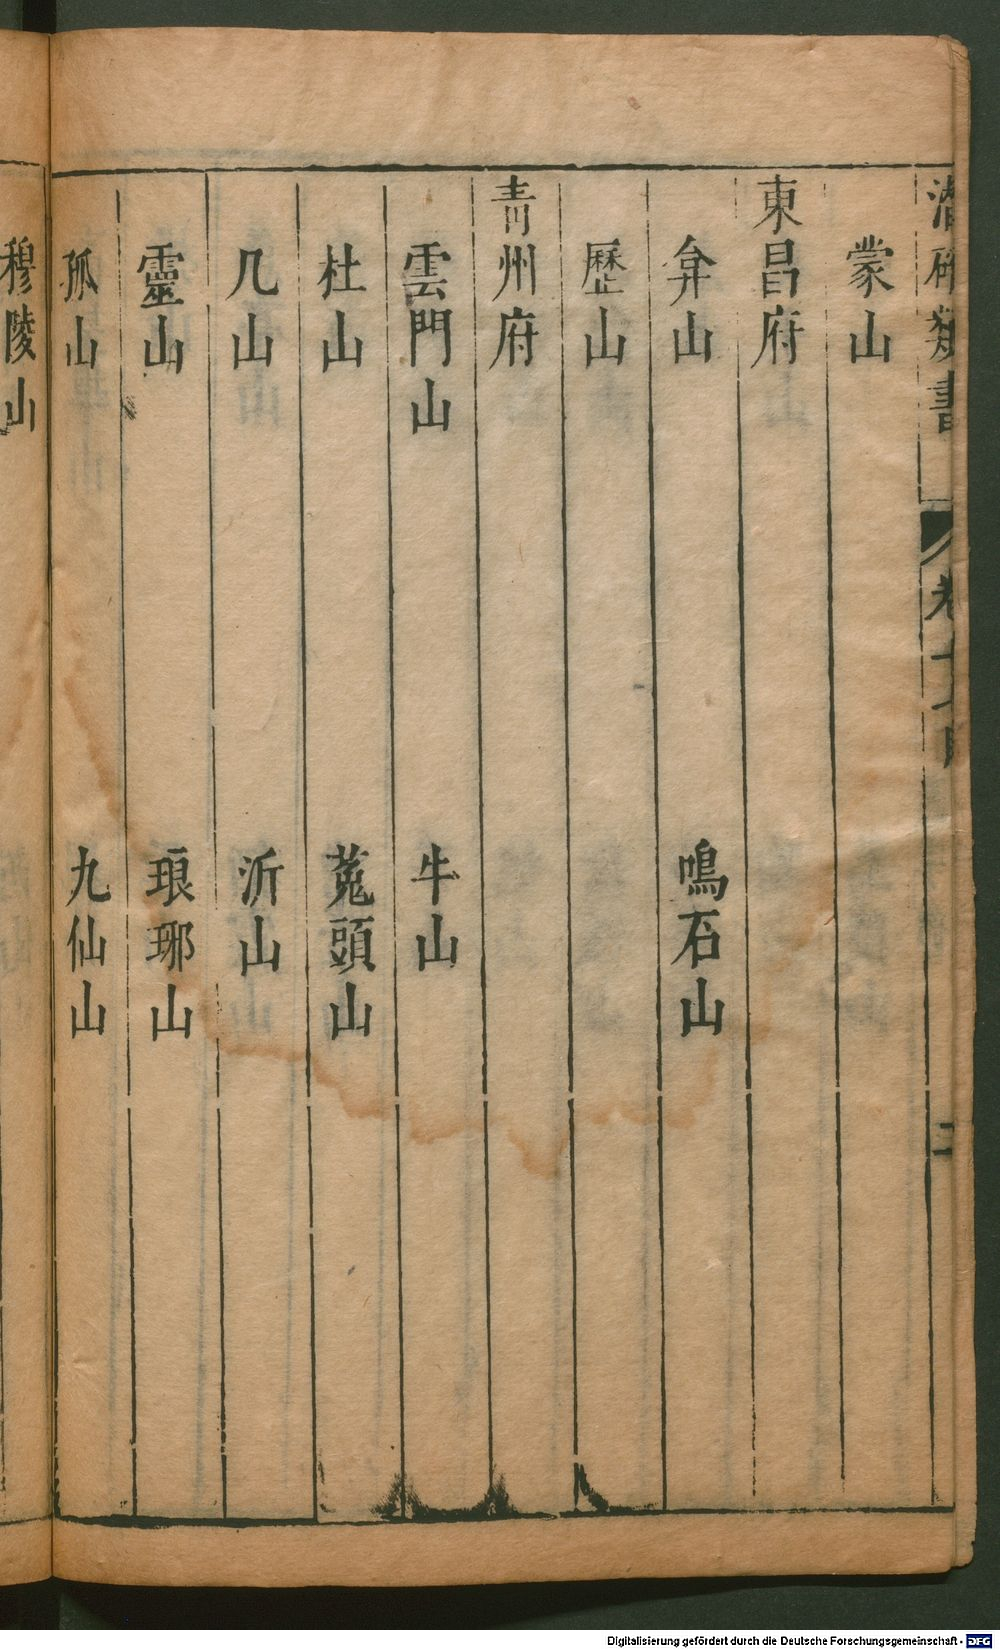 潛確類書 卷十
蒙山
東昌府
弇山 鳴石山
歷山
青州府
雲門山 牛山
杜山 菟頭山
几山 沂山
靈山 琅琊山
孤山 九仙山
穆陵山
Digitalisierung gefördert durch die Deutsche Forschungsgemeinschaft - DFG